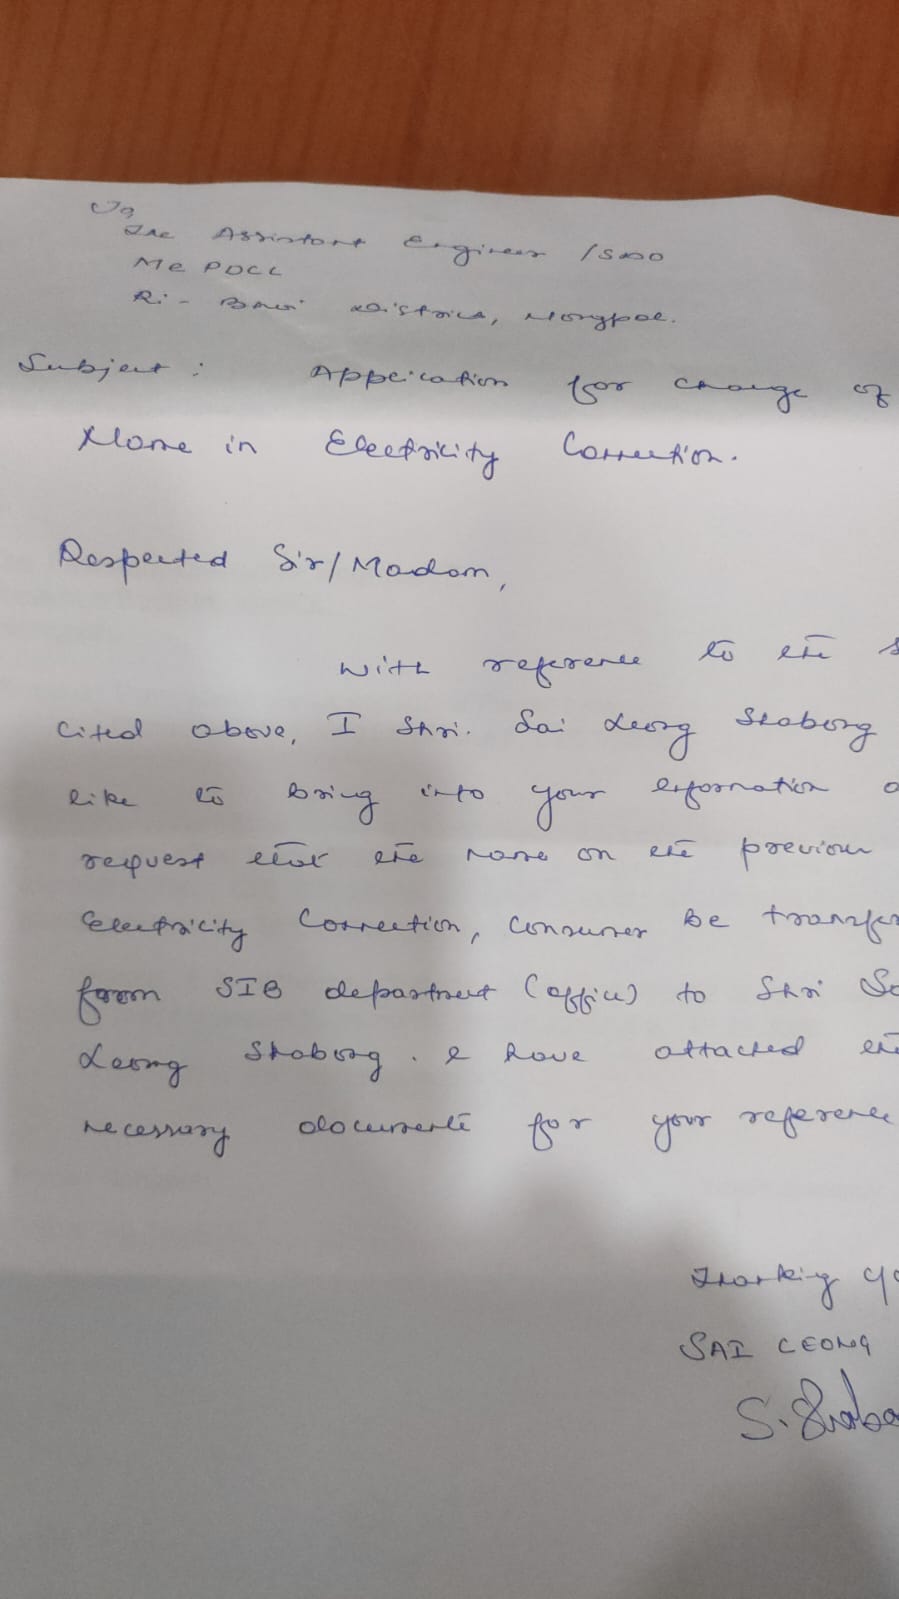 To,
The Assistant Engineer /SDO
Me PDCL
Ri-Bhoi District, Nongpoh.
Subject: Application for change of
Name in Electricity Connection.
Respected Sir/Madam,
With reference to the s
cited above, I Shri. Sai Leong Shabong
like to bring into your information a
request that the name on the previous
Electricity Connection, consumer be transfer
from SIB department (office) to Shri Sa
Leong Shabong. I have attached the
necessary documents for your reference
Thanking yo
SAI LEONG
S. Shabo